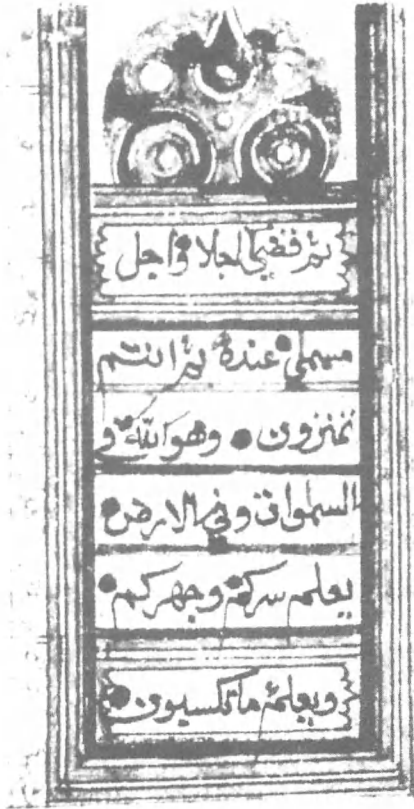 ثم قضى اجلا واجل
مسمى عنده ثم انتم
تمترون وهو الله في
السموات وفي الارض
يعلم سركم وجهركم
ويعلم ما تكسبون